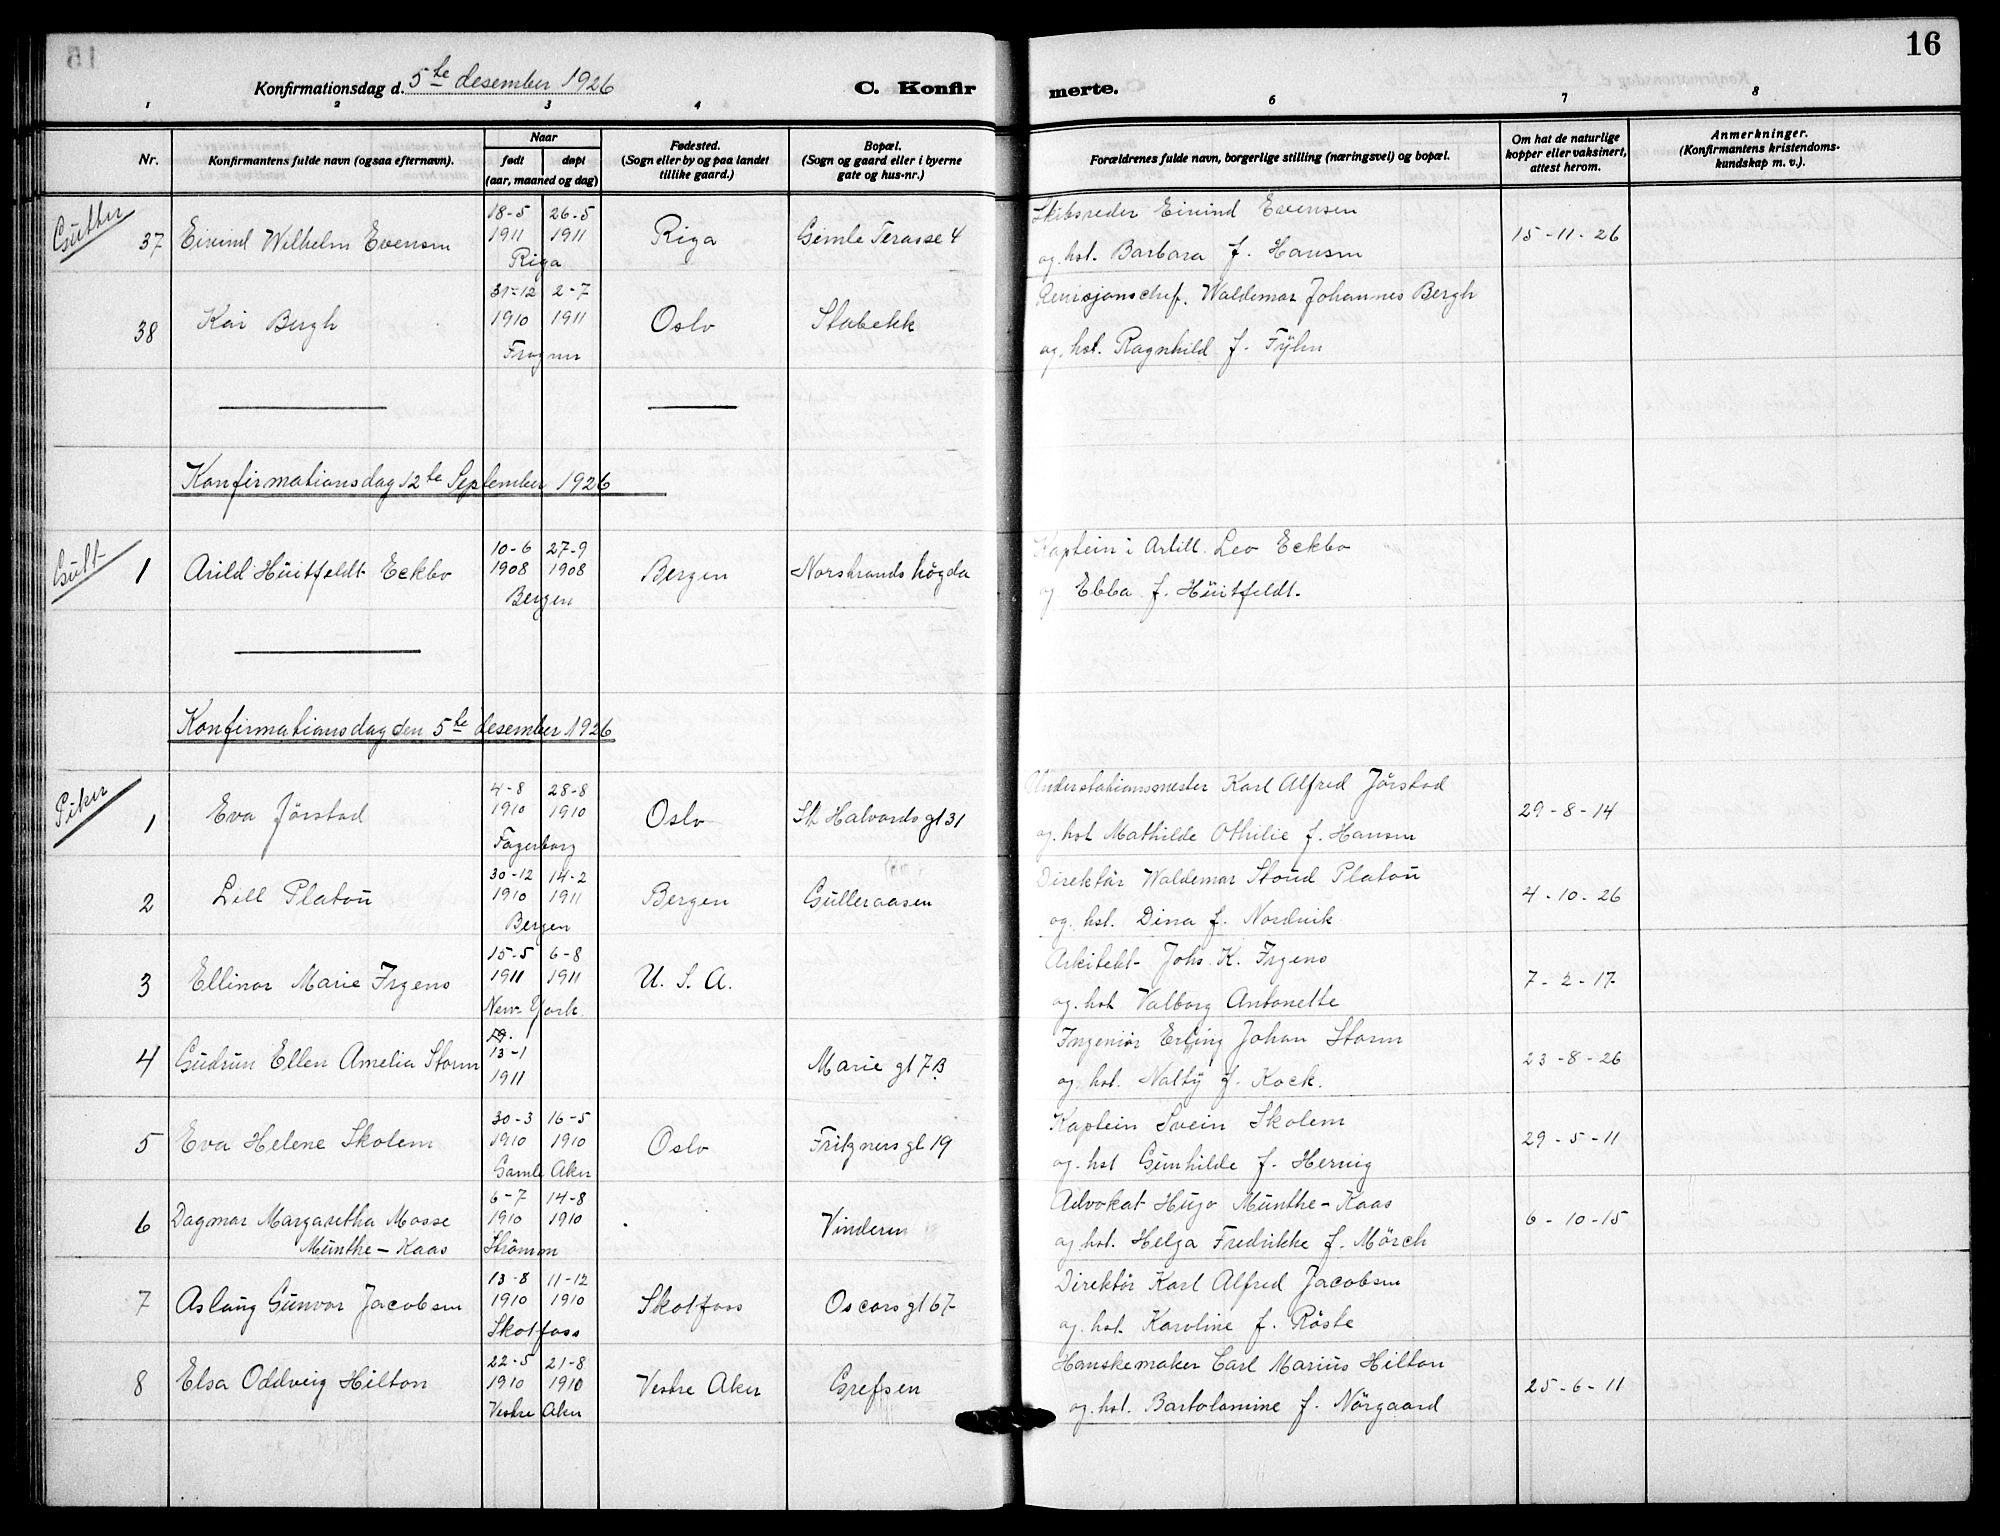 16
Konfirmationsdag d. 5te desember 1926
C. Konfirmerte.
1 2 3 4 6 7 8
Nr.
Konfirmantens fulde navn (ogsaa efternavn).
Naar
født døpt
(aar, maaned og dag)
Fødested.
(Sogn eller by og paa landet
tillike gaard.)
Bopæl.
(Sogn og gaard eller i byerne
gate og hus-nr.)
Forældrenes fulde navn, borgerlige stilling (næringsvei) og bopæl.
Om hat de naturlige
kopper eller vaksinert,
attest herom.
Anmerkninger.
(Konfirmantens kristendoms-
kundskap m. v.).
Gutter
37 Eivind Wilhelm Evensen
18-5 26-5
1911 1911
Riga
Riga
Gimle Terasse 4
Skibsreder Eivind Evensen
og hst. Barbara f. Hansen
15-11-26
38 Kai Bergh
31-12 2-7
1910 1911
Frogner
Oslo
Stabekk
Revisjonschef. Waldemar Johannes Bergh
og hst. Ragnhild f. Fÿhn
Konfirmationsdag 12te September 1926
Gutt
1 Arild Huitfeldt Eckbo
10-6 27-9
1908 1908
Bergen
Bergen
Norstrands högda
Kaptein i Artill. Leo Eckbo
og Ebba f. Huitfeldt.
Konfirmationsdag den 5te desember 1926
Piker
1 Eva Jörstad
4-8 28-8
1910 1910
Fagerborg
Oslo
St Halvards gt 31
Understationsmester Karl Alfred Jörstad
og hst Mathilde Othilie f. Hansen
29-8-14
2 Lill Platou
30-12 14-2
1910 1911
Bergen
Bergen
Gulleraasen
Direktör Waldemar Stoud Platou
og hst. Dina f. Nordvik
4-10-26
3 Ellinor Marie Irgens
15-5 6-8
1911 1911
New-York
U. S. A.
Arkitekt Johs. K. Irgens
og hst Valborg Antonette
7-2-17
4 Gudrun Ellen Amelia Storm
13-1
1911
Marie gt 7B
Ingeniör Erling Johan Storm
og hst. Nally f. Kock.
23-8-26
5 Eva Helene Skolem
30-3 16-5
1910 1910
Gamle Aker
Oslo
Fritzners gt 19
Kaptein Svein Skolem
og hst Gunhilde f. Hernig
29-5-11
6 Dagmar Margaretha Mosse
Munthe-Kaas
6-7 14-8
1910 1910
Strömm
Vinderen
Advokat Hugo Munthe-Kaas
og hst. Helga Fredrikke f. Mörch
6-10-15
7 Aslaug Gunvor Jacobsen
13-8 11-12
1910 1910
Skotfoss
Skotfoss
Oscars gt 67
Direktör Karl Alfred Jacobsen
og hst. Karoline f. Röste
8 Elsa Oddveig Hilton
22-5 21-8
1910 1910
Vestre Aker
Vestre Aker
Grefsen
Hanskemaker Carl Marius Hilton
og hst. Bartolomine f. Nörgaard
25-6-11